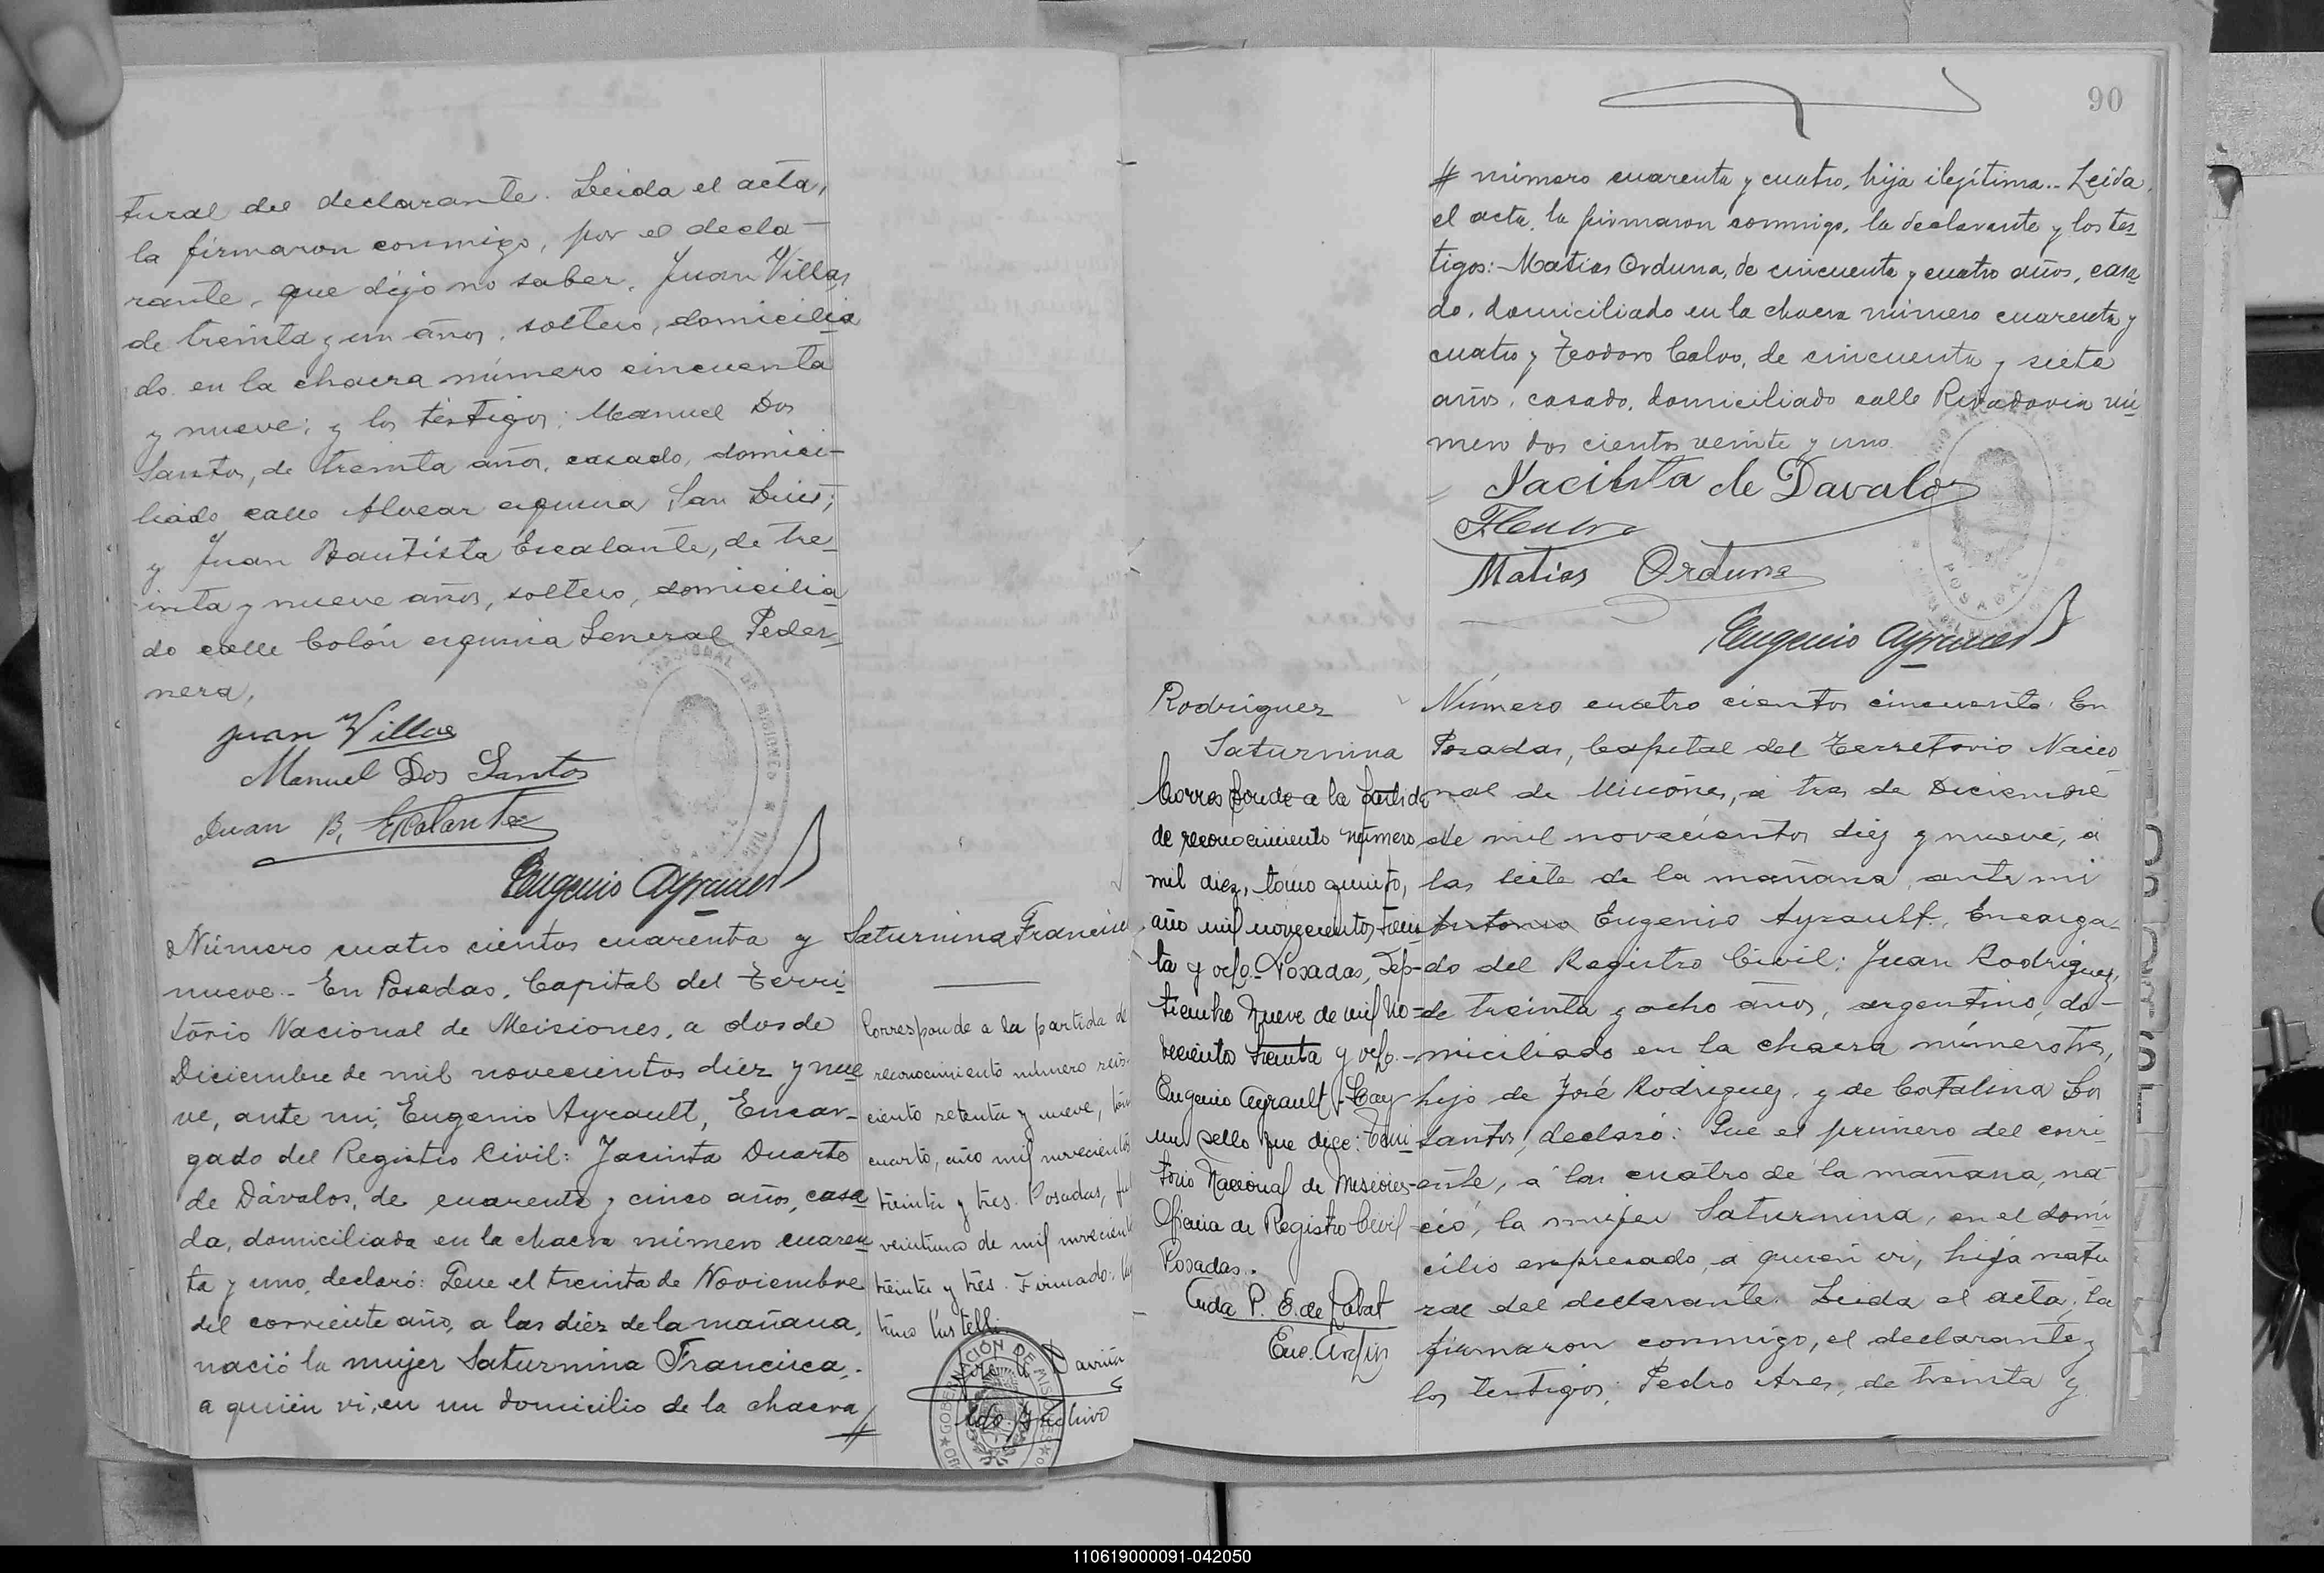 tural del declarante. Leida el acta,
la firmaron conmigo, por el decla-
rante, que dijo no saber, Juan Villas
de treinta y un años, soltero, domicilia
do en la chacra número cincuenta
y nueve; y los testigos: Manuel Dos
Santos, de treinta años, casado, domici-
liado calle Alvear esquina San Luis;
y Juan Bautista Escalante, de tre-
inta y nueve años, soltero, domicilia
do calle Colón esquina General Peder-
nera,
Juan Villas
Manuel Dos Santos
Juan B. Escalante
Eugenio Ayrault
Número cuatro cientos cuarenta y
nueve.- En Posadas, Capital del Terri
torio Nacional de Meisiones, a dos de
Diciembre de mil novecientos diez y nue
ve, ante mi, Eugenio Ayrault, Encar-
gado del Registro Civil: Jacinta Duarte
de Dávalos, de cuarenta y cinco años, casa
da, domiciliada en la chacra número cuaren
ta y uno, declaró: Que el treinta de Noviembre
del corriente año, a las diéz de la mañana,
nació la mujer Saturnina Francisca,
a quién vi, en un domicilio de la chacra
#
Saturnina Francisca
Corresponde a la partida de
reconocimiento número seis-
ciento setenta y nueve,
cuarto, año mil novecientos
treinta y tres. Posadas,
veintiuno de mil novecient
treinta y trés. Firmado:
Archivo
GOBERNACIÓN DE MISIONES
90
# número cuarenta y cuatro, hija ilegítima.- Leida
el acta, la firmaron conmigo, la declarante y los tes
tigos: Matias Orduna, de cincuenta y cuatro años, casa
do, domiciliado en la chacra número cuarenta y
cuatro y Teodoro Calvo, de cincuenta y siete
años, casado, domiciliado calle Rivadavia nú
mero dos cientos veinte y uno.
Jacinta de Davalos
Matias Orduna
Eugenio Ayrault
POSADAS
Rodriguez
Saturnina
Corresponde a la partida
de reconocimiento número
mil diez, tomo quinto,
año mil novecientos trein
ta y ocho. Posadas, Sep-
tiembre nueve de mil no-
vecientos treinta y ocho.-
Eugenio Ayrault.- Hay
un sello que dice: Terri
torio Nacional de Misiones-
Oficina de Registro Civil
Posadas.
Número cuatro cientos cincuenta. En
Posadas, Capital del Territorio Nacio
nal de Misiones, a tres de Diciembre
de mil novecientos diez y nueve, á
las siete de la mañana, ante mi
Antonio Eugenio Ayrault, Encarga-
do del Registro Civil: Juan Rodriguez,
de treinta y ocho años, argentino, do-
miciliado en la chacra número tres,
hijo de José Rodriguez, y de Catalina Dos
Santos, declaró: Que el primero del corri-
ente, á las cuatro de la mañana, na
ció, la mujer Saturnina, en el domi
cilio expresado, a quien vi, hija natu
ral del declarante. Leida el acta, la
firmaron conmigo, el declarante y
los testigos: Pedro Ares, de treinta y
110619000091-042050